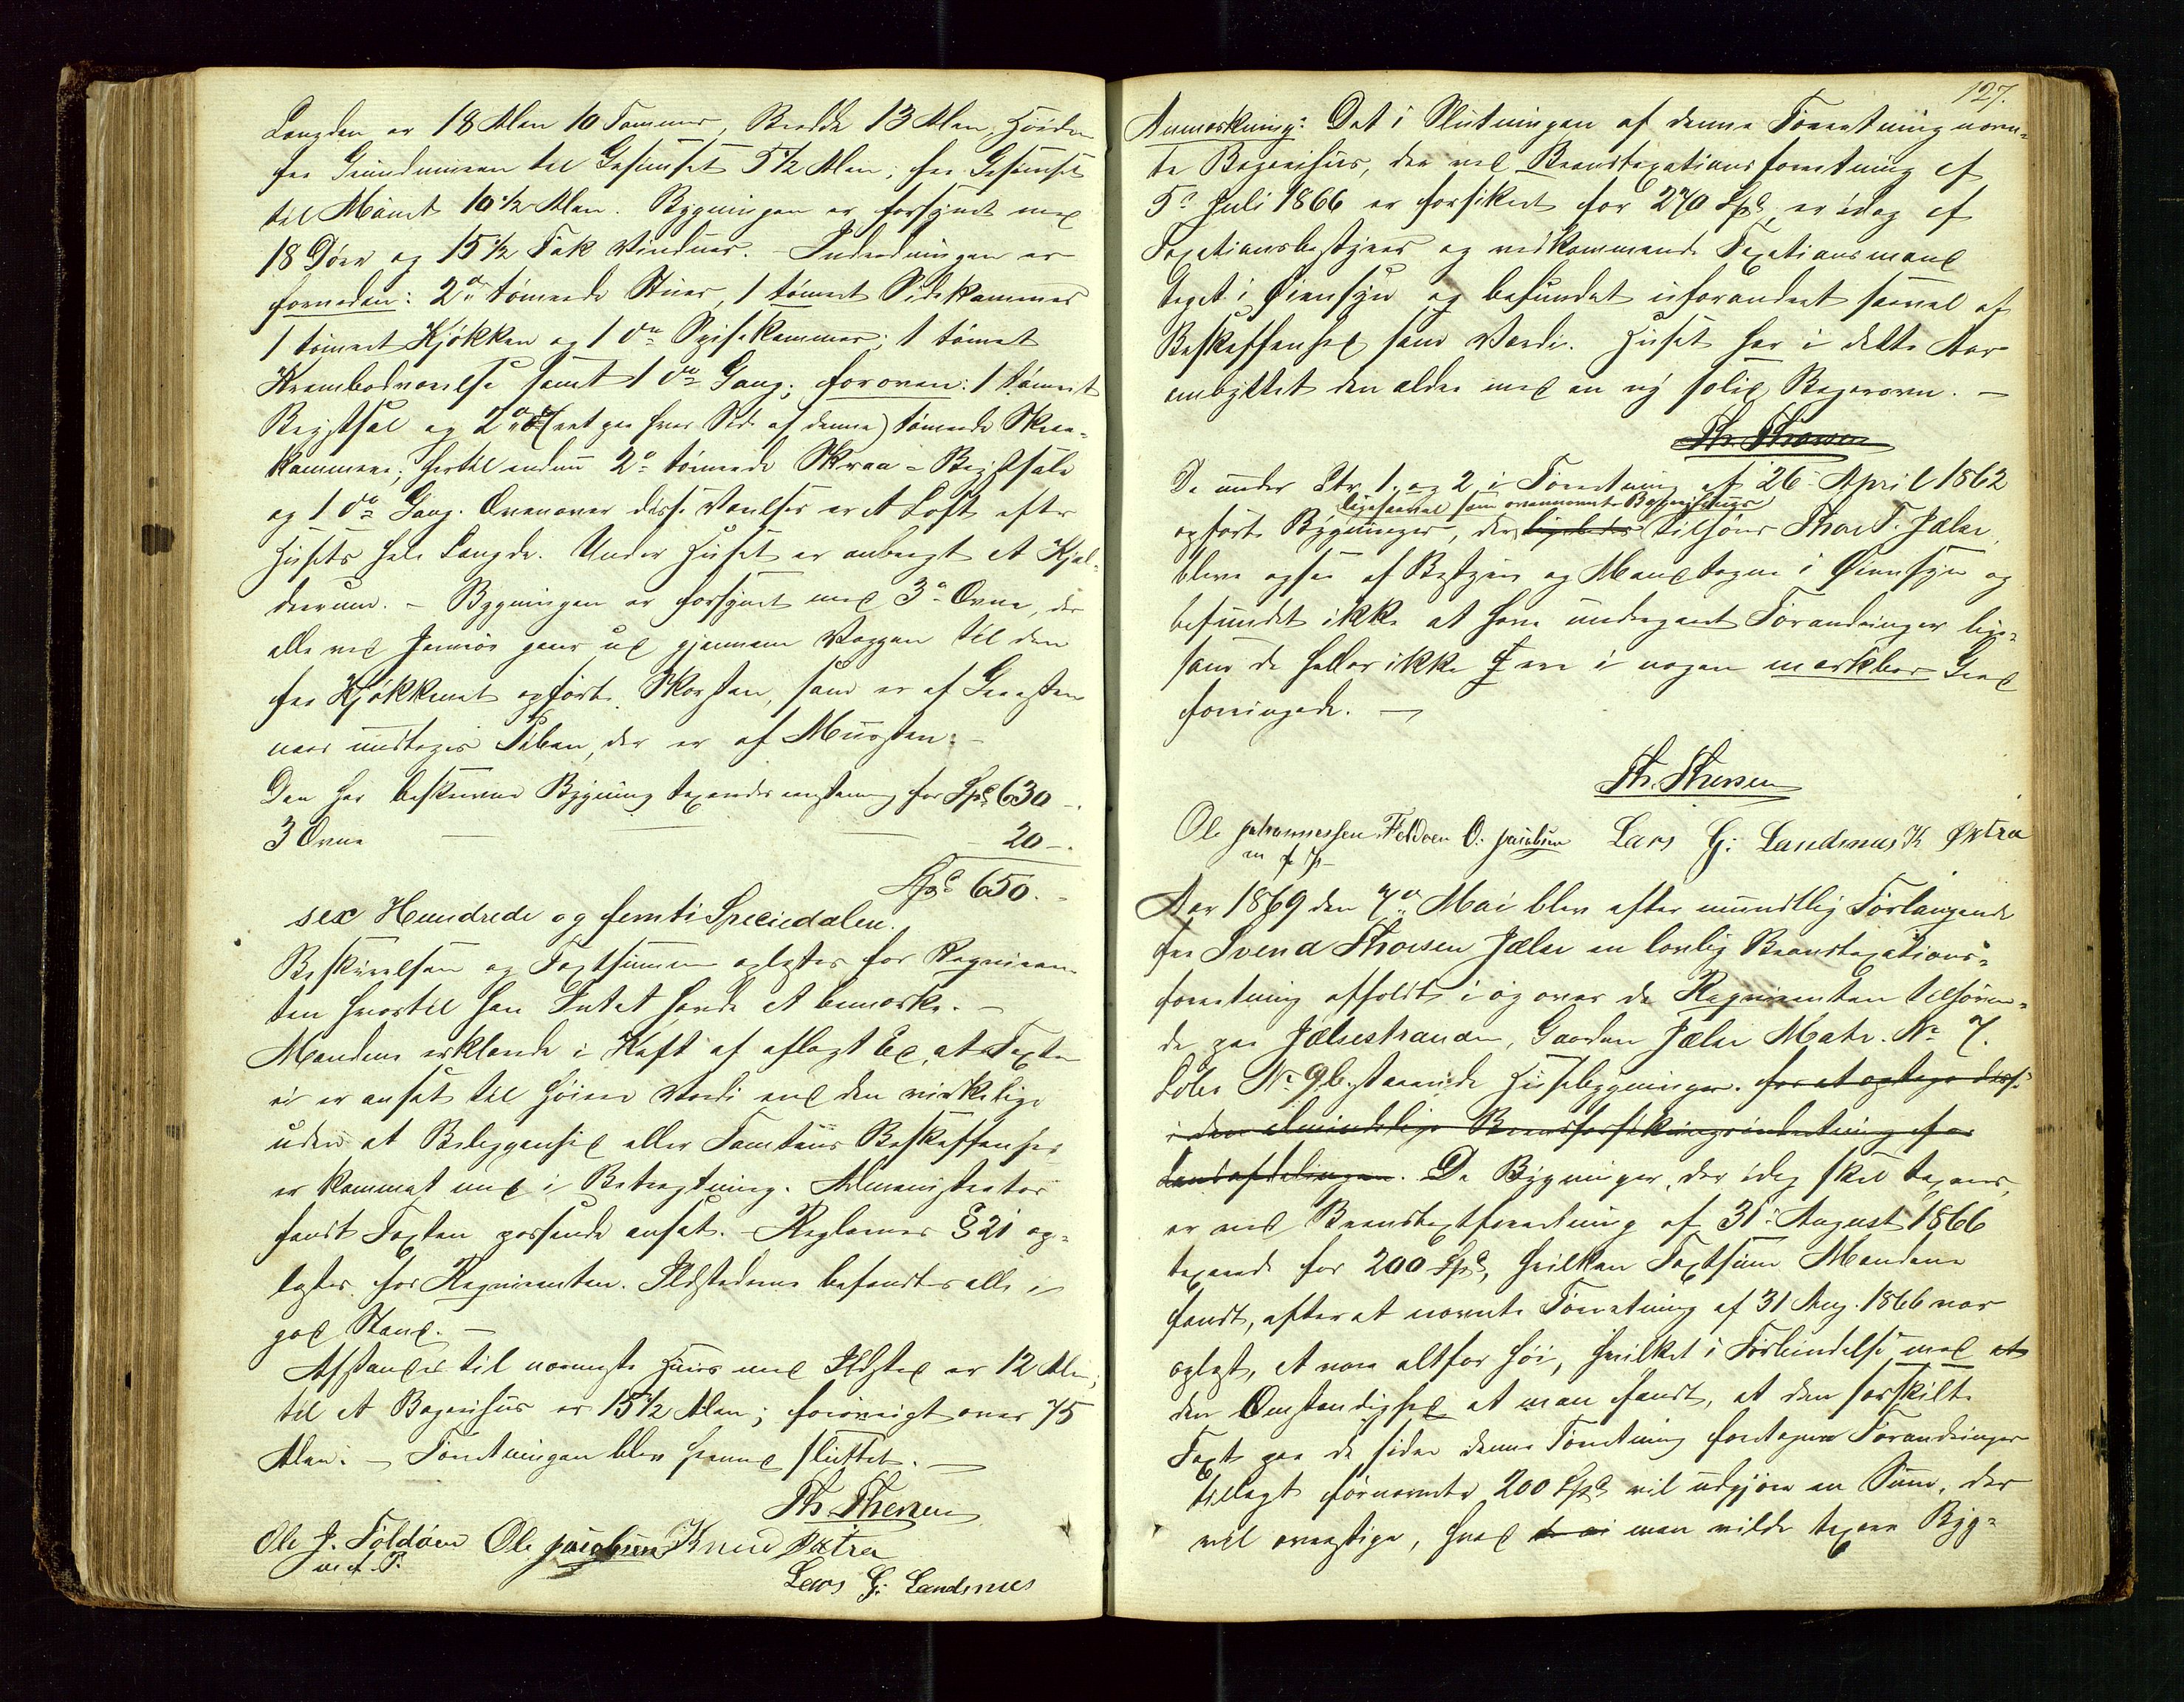 Længden er 18 Alen 10 Tommer, Bredde 13 Alen, Høiden
fra Grundmuren til Gesimset 5 1/2 Alen; fra Gesimset
til Mønet 10 1/2 Alen. Bygningen er forsynet med
18 Døre og 15 1/2 Fak Vinduer. Indredningen er
forneden: 2de tømrede Stuer, 1 tømret Sidekammer
1 tømret Kjøkken og 1 do Spisekammer; 1 tømret
Krambodværelse samt 1 do Gang; foroven: 1 tømret
Brystsal og 2de (et paa hver Side af denne) tømrede Skraa-
kammere; hertil endnu 2de tømrede Skraa-Brystsale
og 1 do Gang. Ovenover disse Værelser er et Loft efter
Husets hele Længde. Under Huset er anbragt et Kjæl-
derrum. - Bygningen er forsynet med 3de Ovne, der
alle ved Jernrør gaar ud gjennem Væggen til den
fra Kjøkkenet opførte Skorsten, som er af Graasten
naar undtages Piben, der er af Mursten. -
Den her beskrevne Bygning taxeredes enstemmig for Spd 630 -.
3 Ovne - 20 -.
Spd 650. -
sex Hundrede og femti Speciedaler.
Beskrivelsen og Taxtsummen oplæstes for Reqviren-
ten hvortil han Intet havde at bemærke. -
Mændene erklærede i Kraft af aflagt Ed, at Taxten
ei er ansat til høiere Værdi end den virkelige
uden at Beliggenhed eller Tomtens Beskaffenhed
er kommet med i Betragtning. Administrator
fandt Taxten passende ansat. - Reglernes § 21 op-
læstes for Reqvirenten. Ildstederne befandtes alle i
god Stand. -
Afstanden til nærmeste Huus med Ildsted er 12 Alen;
til et Bagerihus er 15 1/2 Alen; forøvrigt over 75
Alen. - Forretningen blev hermed sluttet. -
Th. Thersen
Ole J. Foldøen Ole Jacobsen Knud Øxtra
m. f. P.
Lars G: Landsnes
127.
Anmærkning: Det i Slutningen af denne Forretning nævn-
te Bagerihus, der ved Brandtaxationsforretning af
5te Juli 1866 er forsikret for 270 Spd, er idag af
Taxationsbestyrer og vedkommende Taxationsmænd
taget i Øiensyn og befundet uforandret saavel af
Beskaffenhed som Værdi. Huset har i dette Aar
ombyttet den ældre med en ny solid Bagerovn. -
Th. Thorsen
De under Litr. 1. og 2 i Forretning af 26. April 1862
ligesaavel som ovennævnte Bagerihus
opførte Bygninger, der ligeledes tilhører Thore T. Jælse,
bleve ogsaa af Bestyrer og Mænd tagne i Øiensyn og
befundet ikke at have undergaaet Forandringer lige-
som de heller ikke ere i nogen mærkbar Grad
forringede. -
Th. Thersen
Ole Johannessen Foldøen O. Jacobsen Lars G: Landsnes K Øxtra
m f P
Aar 1869 den 7de Mai blev efter mundtlig Forlangende
fra Svend Thorsen Jælse en lovlig Brandtaxations-
forretning afholdt i og over de Reqvirenten tilhøren-
de paa Jælsestranden, Gaarden Jælse Matr. No 7.
Løbe No 9b. staaende Husebygninger. for at optage disse
i den almindelige Brandforsikringsindretning for
Landsafdelingen. De Bygninger, der idag skal taxeres,
er ved Brandtaxtforretning af 31. August 1866
taxerede for 200 Spd, hvilken Taxtsum Mændene
fandt, efterat nævnte Forretning af 31 Aug. 1866 var
oplæst, at være altfor høi, hvilket i Forbindelse med at
den Omstændighed at man fandt, at den særskilte
Taxt paa de siden denne Forretning foretagne Forandringer
tillagt førnævnte 200 Spd vil udgjøre en Sum, der
vil overstige, hvad man vilde taxere Byg-